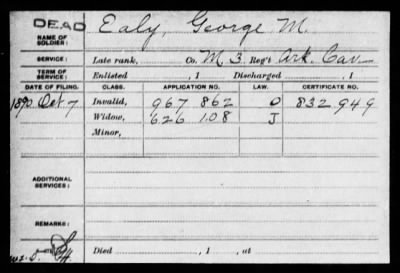 DEAD
NAME OF SOLDIER: Ealy, George M.
SERVICE: Late rank, Co. M, 3 Reg't Ark. Cav
TERM OF SERVICE: Enlisted , 1 Discharged , 1
DATE OF FILING. CLASS. APPLICATION NO. LAW. CERTIFICATE NO.
1890 Oct 7 Invalid, 967 862 O 832 949
Widow, 626 108 J
Minor,
ADDITIONAL SERVICES:
REMARKS:
Died , 1 , at